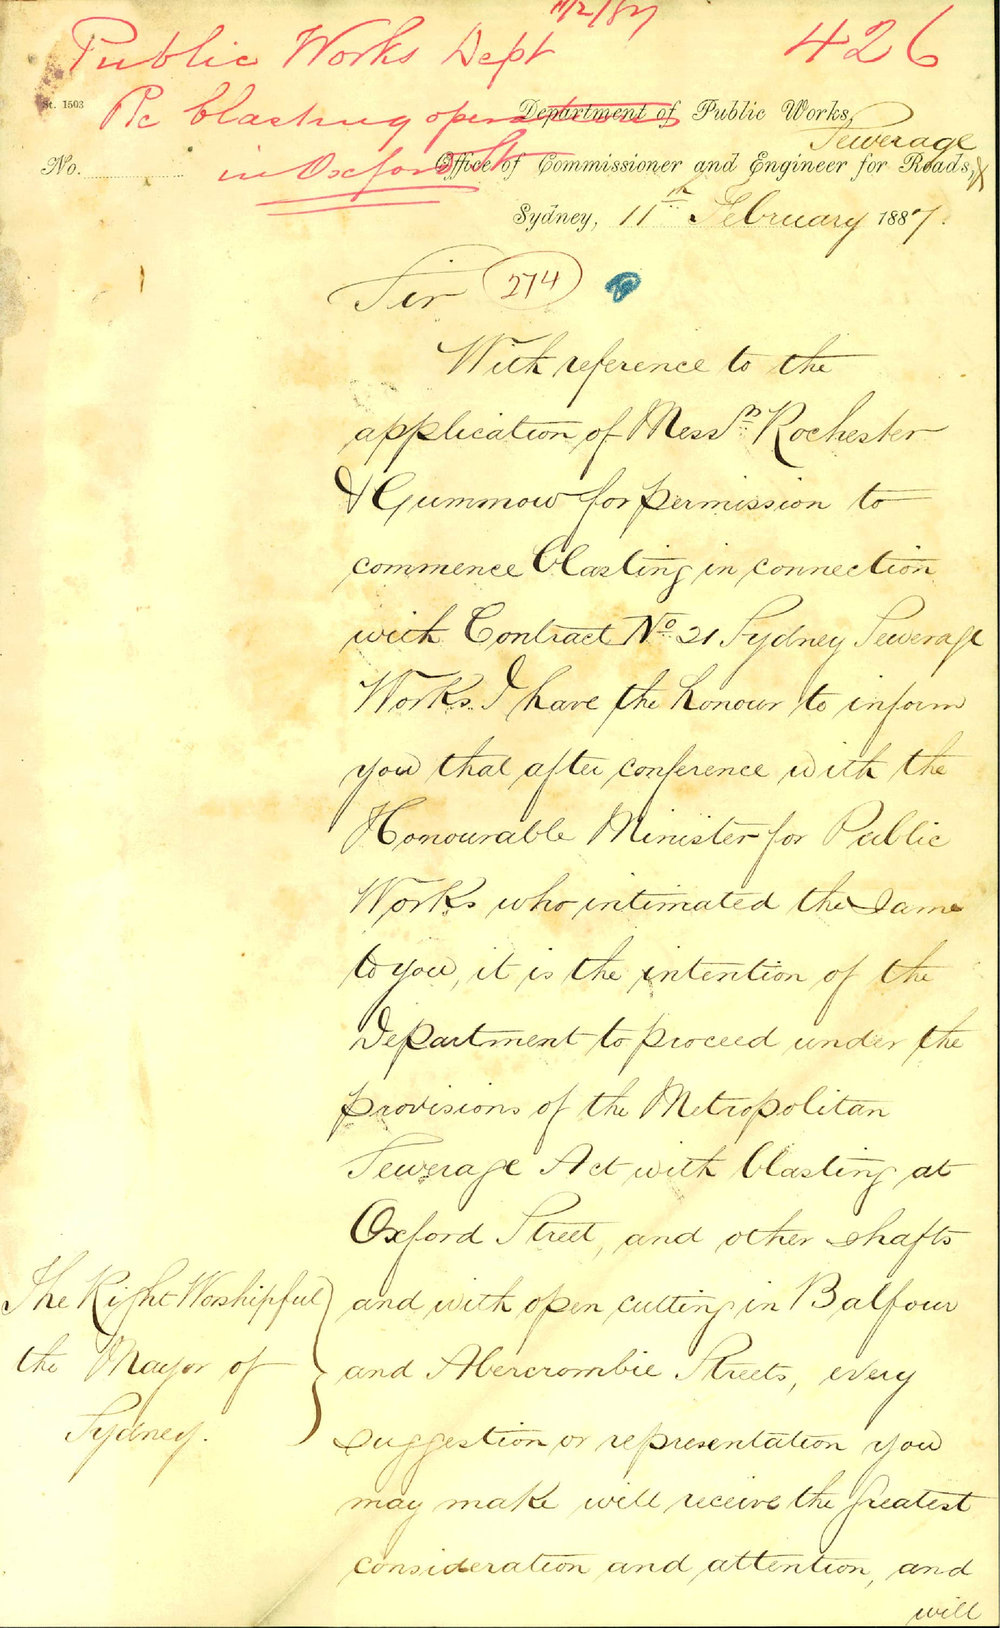 11/2/87
Public Works Dept
426
St. 1503
Re blasting operations
Department of Public Works,
in Oxford St
Sewerage
No.
Office of Commissioner and Engineer for Roads,
Sydney, 11th February 1887.
Sir
274
With reference to the
application of Messrs Rochester
& Gummow for permission to
commence blasting in connection
with Contract No 21 Sydney Sewerage
Works. I have the honour to inform
you that after conference with the
Honourable Minister for Public
Works who intimated the same
to you, it is the intention of the
Department to proceed under the
provisions of the Metropolitan
Sewerage Act with blasting at
Oxford Street, and other shafts
and with open cutting in Balfour
and Abercrombie Streets, every
suggestion or representation you
may make will receive the greatest
consideration and attention, and
will
The Right Worshipful
the Mayor of
Sydney.